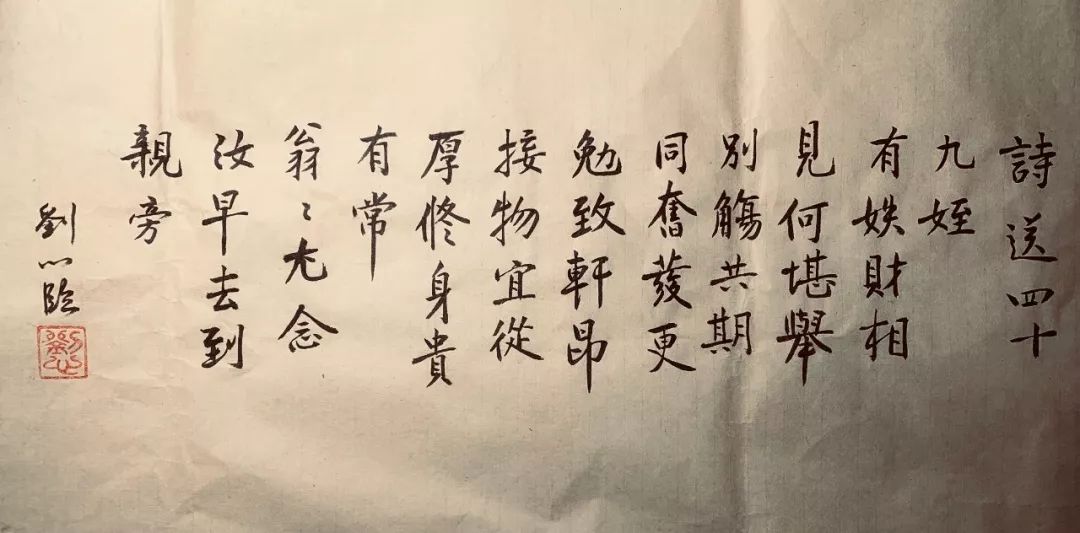 詩送四十
九姪
有妷財相
見何堪舉
別觴共期
同奮發更
勉致軒昂
接物宜從
厚修身貴
有常
翁〻尤念
汝早去到
親旁
劉心臨
劉心